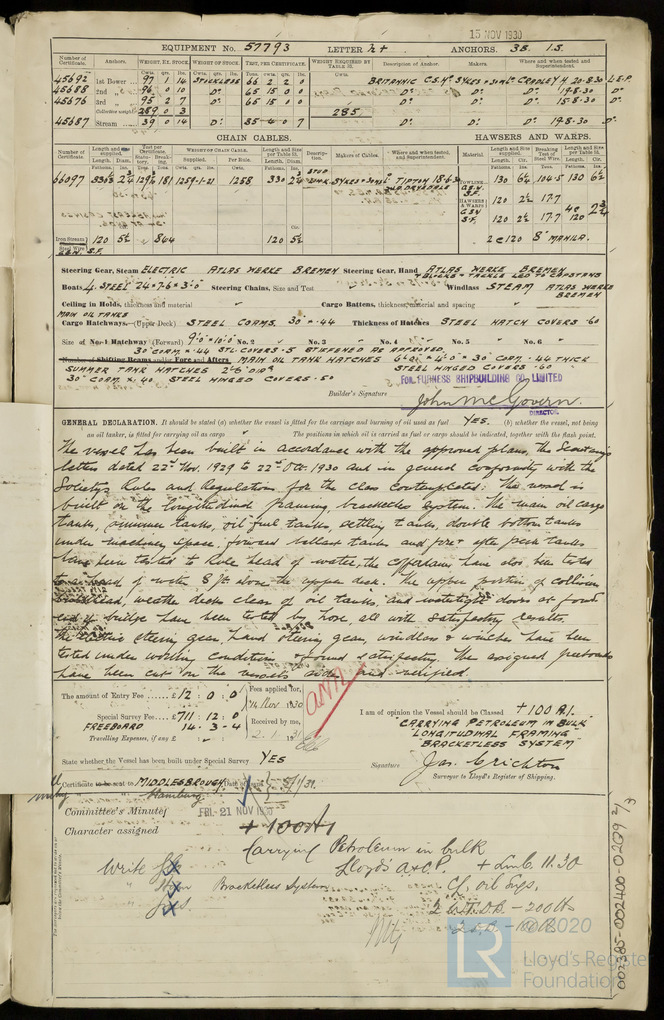 15 NOV 1930
EQUIPMENT No. 57793 LETTER h+ ANCHORS. 3B. 1S.
Number of Certificate. Anchors. WEIGHT, EX. STOCK. WEIGHT OF STOCK. TEST, PER CERTIFICATE. WEIGHT REQUIRED BY TABLE 31. Description of Anchor. Makers. Where and when tested and Superintendent.
45692 1st Bower 97 1 14 STOCKLESS 66 2 2 0 BRITANNIC C.S.H. SYKES & SON LD. CRADLEY H. 20-8-30 L.E.P.
45688 2nd " 96 0 10 Do. 65 15 0 0 Do. Do. 19-8-30 Do.
45676 3rd " 95 2 7 Do. 65 15 0 0 Do. Do. 15-8-30 Do.
Collective weight 289 0 3 285
45687 Stream 39 0 14 Do. 35 4 0 7 Do. Do. 19-8-30 Do.
CHAIN CABLES. HAWSERS AND WARPS.
Number of Certificate. Length and size supplied. Test per Certificate. WEIGHT OF CHAIN CABLE. Length and size per Table 31. Description. Makers of Cables. Where and when tested, and Superintendent. Material Length and size supplied. Breaking Test of Steel Wire. Length and size per Table 31.
66097 330 1259-1-21 1258 330 STUD LINK SYKES & SON LD TIPTON 18-6-30 TOWLINE 130 6½ 104.5 130 6½
HAWSERS & WARPS 120 2½ 17.7
120 2½ 17.7
Iron Stream Steel Wire 120 5½ " 564 120 5½ 2 @ 120 8" MANILA.
Steering Gear, Steam ELECTRIC ATLAS WERKE BREMEN Steering Gear, Hand ATLAS WERKE BREMEN + BLOCKS + TACKLE LED TO CAPSTANS
Boats 4. STEEL 24 × 7.6 × 3.0 Steering Chains, Size and Test Windlass STEAM ATLAS WERKE BREMEN
Ceiling in Holds, thickness and material Cargo Battens, thickness, material and spacing
MAIN OIL TANKS
Cargo Hatchways.—(Upper Deck) STEEL COAMS. 30" × .44 Thickness of Hatches STEEL HATCH COVERS .60
Size of No. 1 Hatchway (Forward) 9'0" × 10'0" No. 2 No. 3 No. 4 No. 5 No. 6
30" COAM. × .44 STL. COVERS .5 STIFFENED AS APPROVED.
Number of Shifting Beams and/or Fore and Afters MAIN OIL TANK HATCHES 6'0" × 4'0" × 30" COAM. .44 THICK STEEL HINGED COVERS .60
SUMMER TANK HATCHES 2'6" DIAR
30" COAM × .40 STEEL HINGED COVERS .50
FOR FURNESS SHIPBUILDING CO. LIMITED
Builder's Signature John McGovern.
DIRECTOR.
GENERAL DECLARATION. It should be stated (a) whether the vessel is fitted for the carriage and burning of oil used as fuel YES. (b) whether the vessel, not being
an oil tanker, is fitted for carrying oil as cargo The positions in which oil is carried as fuel or cargo should be indicated, together with the flash point.
The vessel has been built in accordance with the approved plans, the Secretary's
letters dated 22nd Nov. 1929 to 22nd Oct. 1930 and in general conformity with the
Society's Rules and Regulations for the class contemplated: The vessel is
built on the longitudinal framing, bracketless system. The main oil cargo
tanks, summer tanks, oil fuel tanks, settling tanks, double bottom tanks
under machinery space, forward ballast tanks and fore & after peak tanks
have been tested to Rule head of water, the cofferdams have also been tested
to a head of water 8 ft above the upper deck. The upper portion of collision
bulkhead, weather decks clear of oil tanks, and watertight doors at fore
end of bridge have been tested by hose, all with satisfactory results.
The electric steering gear, hand steering gear, windlass & winches have been
tested under working conditions & found satisfactory. The assigned freeboards
have been cut on the vessel's sides and verified.
The amount of Entry Fee £12 : 0 : 0 Fees applied for, 14 Nov. 1930
Special Survey Fee £711 : 12 : 0 Received by me,
FREEBOARD 14 - 3 - 4 2. 1. 31
Travelling Expenses, if any £
I am of opinion the Vessel should be Classed +100 A.1.
"CARRYING PETROLEUM IN BULK"
"LONGITUDINAL FRAMING"
"BRACKETLESS SYSTEM"
State whether the Vessel has been built under Special Survey YES
Signature Jas. Crichton
Surveyor to Lloyd's Register of Shipping.
Certificate to be sent to MIDDLESBROUGH
Hamburg
Committee's Minute FRI. 21 NOV 1930
Character assigned + 100A1
Carrying Petroleum in bulk
Lloyd's A & C.P. + LMC 11.30
Write
Bracketless System Cf. oil Engs.
© 2020
Lloyd's Register
Foundation
LR
002385-002400-0209 2/3